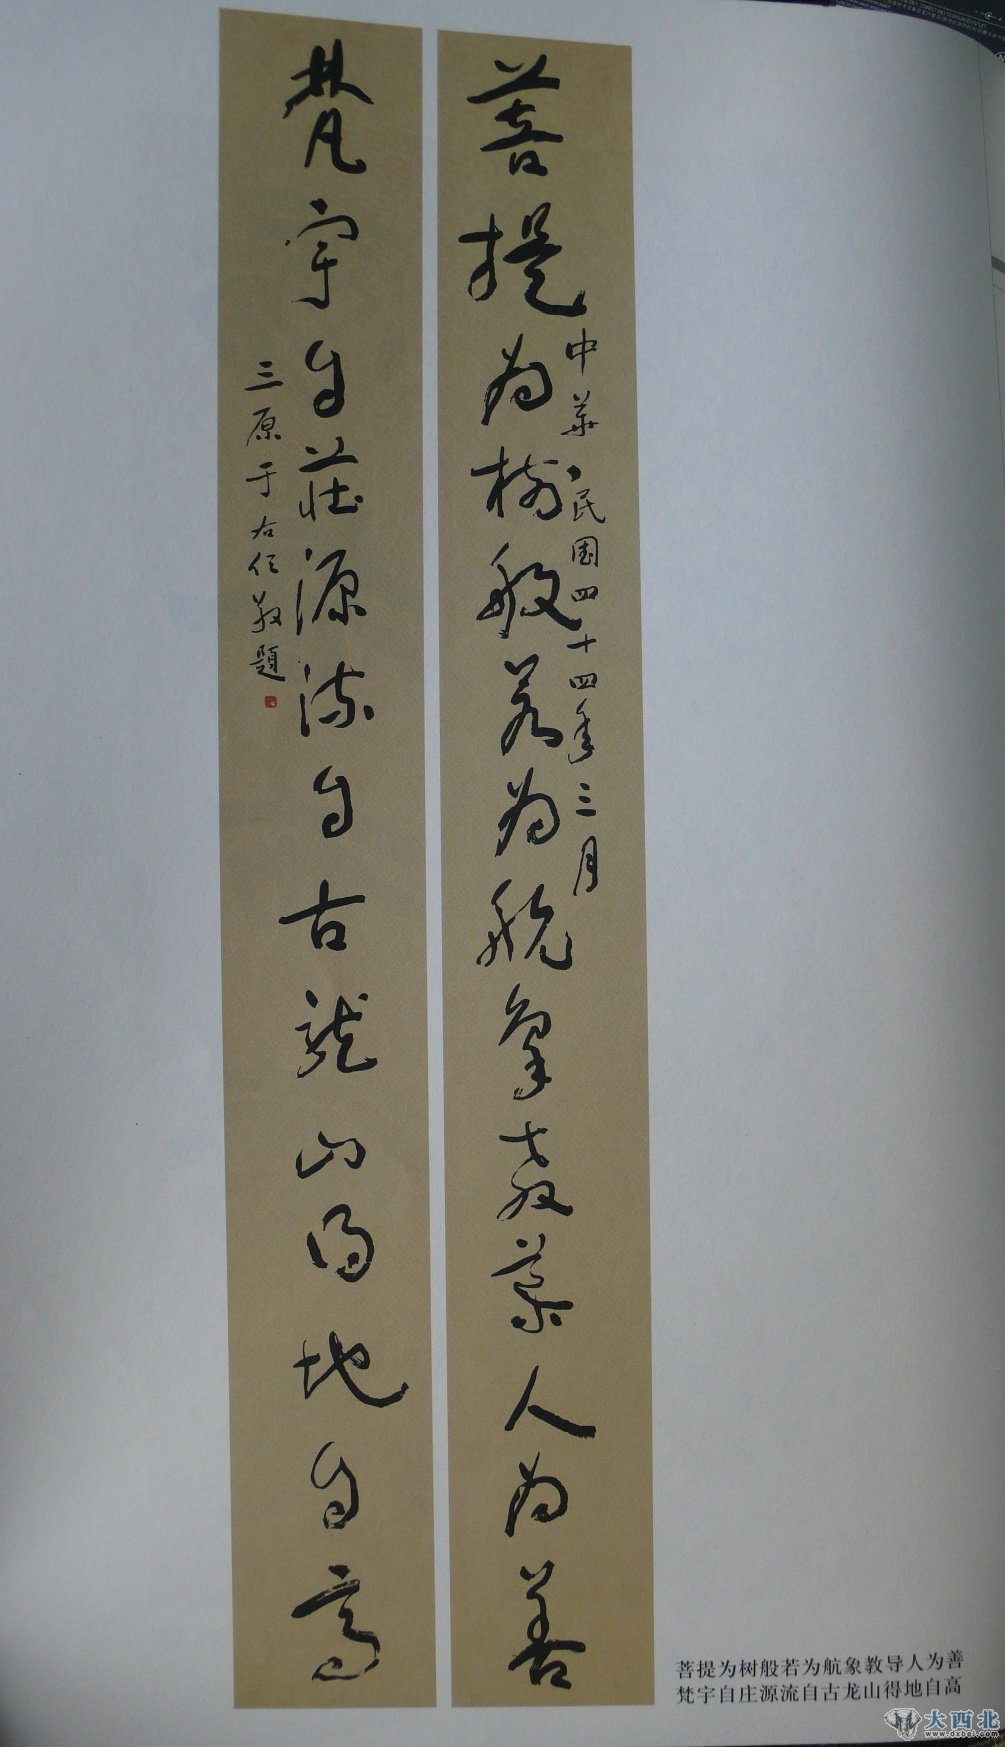 菩提为樹般若为航象教人为善
中華民国四十四年三月
梵宇自莊源流自古龍山得地自高
三原于右任敬題
菩提为树般若为航象教导人为善
梵宇自庄源流自古龙山得地自高
大西北